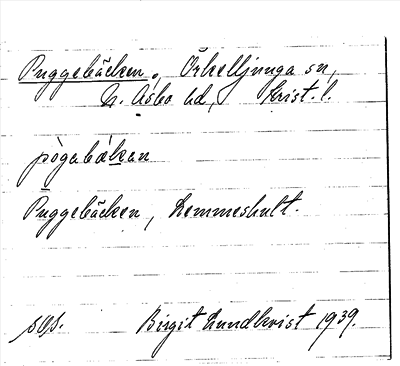 Puggebäcken, Örkelljunga sn,
N. Åsbo hd, Krist. l.
pògabækan
Puggebäcken, Lemmeshult.
SOS. Birgit Lundkvist 1939.